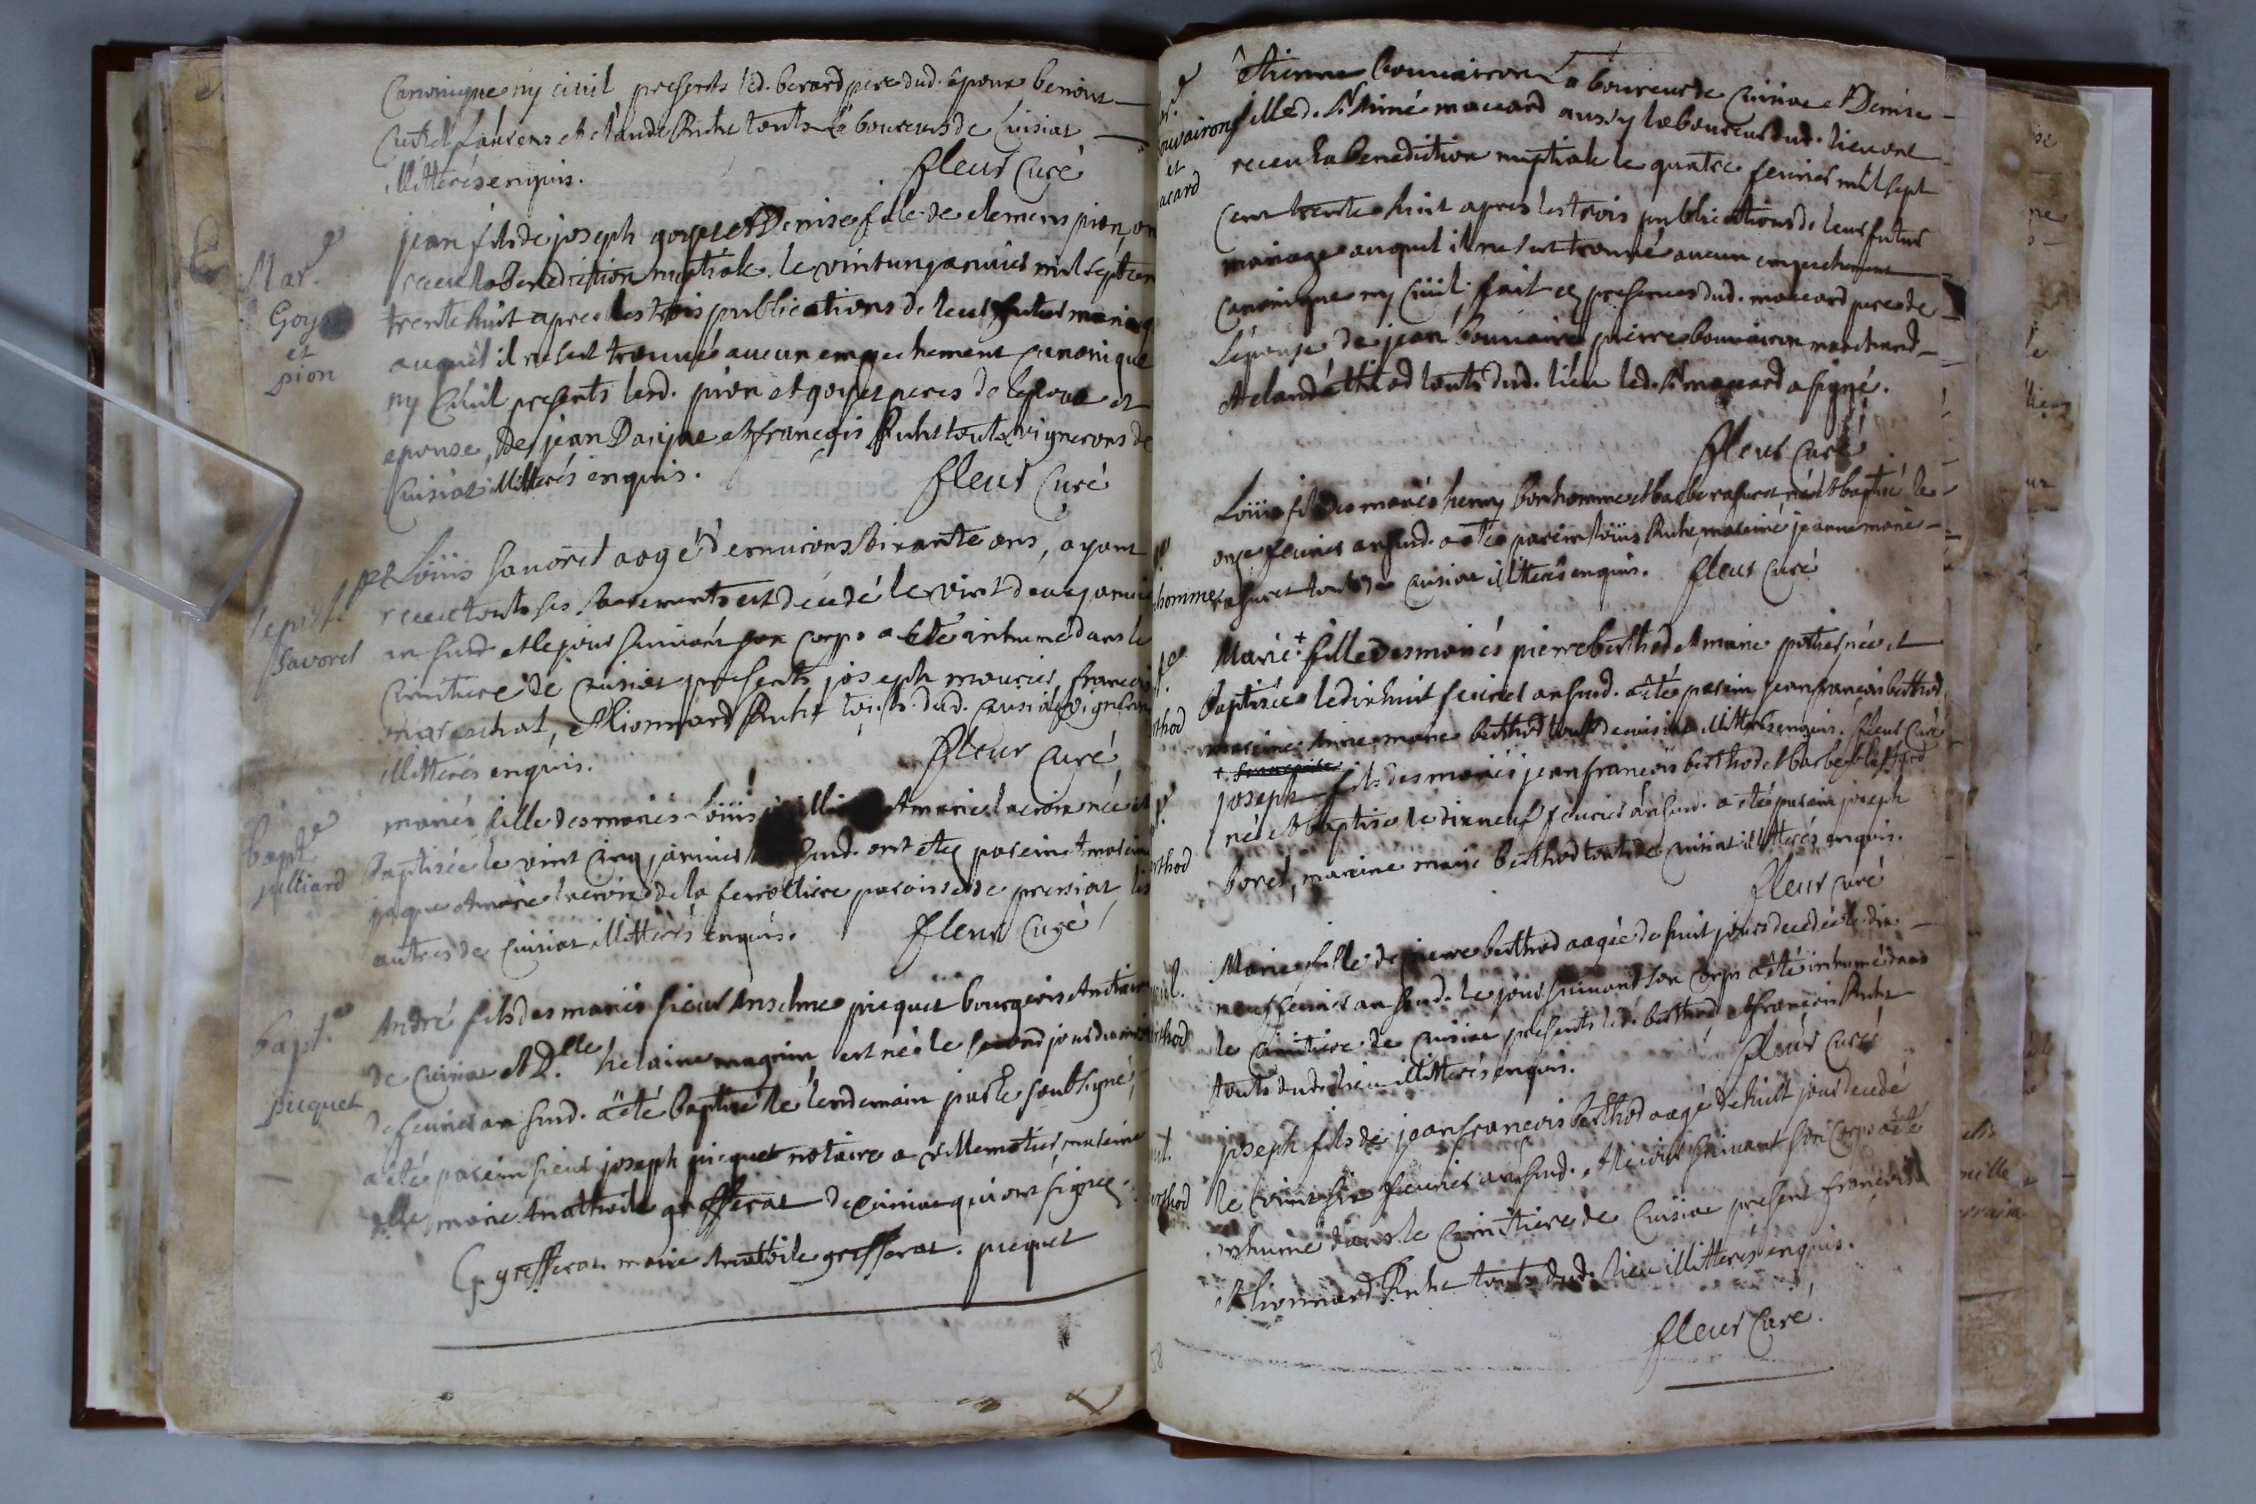 Canonique ny civil presents led. berard pere dud. epoux benoist
Curtel Laurens et claude Puthe touts Laboureurs de Cuisiat
illitterés enquis. fleur Curé
Mar.e
Goy
et
pion
jean fils de joseph goyfet Denise fille de clemens pion, on
receu la benediction nuptiale le vint un janvier mil sept cen
trente huit apres les trois publications de leur futur mariag
auquel il ne s'est trouvé aucun empechement canonique
ny Civil presents lesd. pion et goyfet peres de l'epoux et
epouse, de jean Danjae et francois Puthe touts vignerons de
Cuisiat illitterés enquis. fleur Curé
sepult.
Savoret
Loüis Savoret aagé d'environ soixante ans, ayant
receu touts ses sacrements est décédé le vint deux janvie
an susd. et le jour suivant son corps a eté inhumé dans le
Cimitiere de Cuisiat presents joseph mourier, francois
marechat, et Lionnard Puthe touts dud. Cuisiat vignerons
illitterés enquis. fleur Curé
bapt.e
julliard
marié fille des mariés Loüis et marie lacroix née et
Baptisée le vint cinq janvier susd. ont eté parein et mareine
jaque et marie lacroix de la ferrolliere paroisse de pressiat les
autres de Cuisiat illitterés enquis. fleur Curé
bapt.e
picquet
André fils des mariés sieur Anselme picquet bourgeois et notaire
de Cuisiat et D.lle helaine magnin, est né le second jour du mois
de fevrier an susd. a eté baptisé le lendemain par le soubsigné,
a eté parein sieur joseph picquet notaire a villemotier, mareine
d.lle marie Anathoile grefferat de Cuisiat qui ont signé.
C. grefferat marie Anathoile grefferat. picquet
ouvairon
et
acard
Etienne bouvairon Laboureur de Cuisiat et Denise
fille d. Sr Aimé macard aussy laboureur dud. lieu ont
receu la Benediction nuptiale le quatre fevrier mil sept
Cent trente huit apres les trois publications de leur futur
mariage auquel il ne s'est trouvé aucun empechement
Canonique ny Civil. fait es presences dud. macard pere de
L'epouse de jean bouvairon pierre bouvairon marchand
et claude thod touts dud. lieu led. Sr macard a signé.
fleur Curé
homme
Loüis fils des mariés henry bonhomme et barbe rasurat né et baptisé le
onze fevrier an susd. a eté parein Loüis Puthe, mareine jeanne marie
rasurat touts de Cuisiat illitterés enquis. fleur Curé
thod
Marie + fille des mariés pierre berthod et marie pothier née et
baptisée le dix huit fevrier an susd. a eté parein jean francois berthod
mareine Anne marie berthod touts de Cuisiat illitterés enquis. fleur Curé
rthod
joseph fils des mariés jean francois berthod et barbe
né et baptisé le dix neuf fevrier an susd. a eté parein joseph
borel, mareine marie berthod touts de Cuisiat illitterés enquis.
fleur Curé
rthod
Marie fille de pierre berthod aagée de huit jours decedée le dix
neuf fevrier an susd. le jour suivant son corps a eté inhumé dans
le Cimitiere de Cuisiat presents led. berthod et francois Puthe
touts dud. lieu illitterés enquis. fleur Curé
rthod
joseph fils de jean francois berthod aagé de huit jours decedé
le vint six fevrier an susd. et le jour suivant son corps a eté
inhumé dans le Cimitiere de Cuisiat present francois
et Lionnard Puthe touts dud. lieu illitterés enquis.
fleur Curé
58